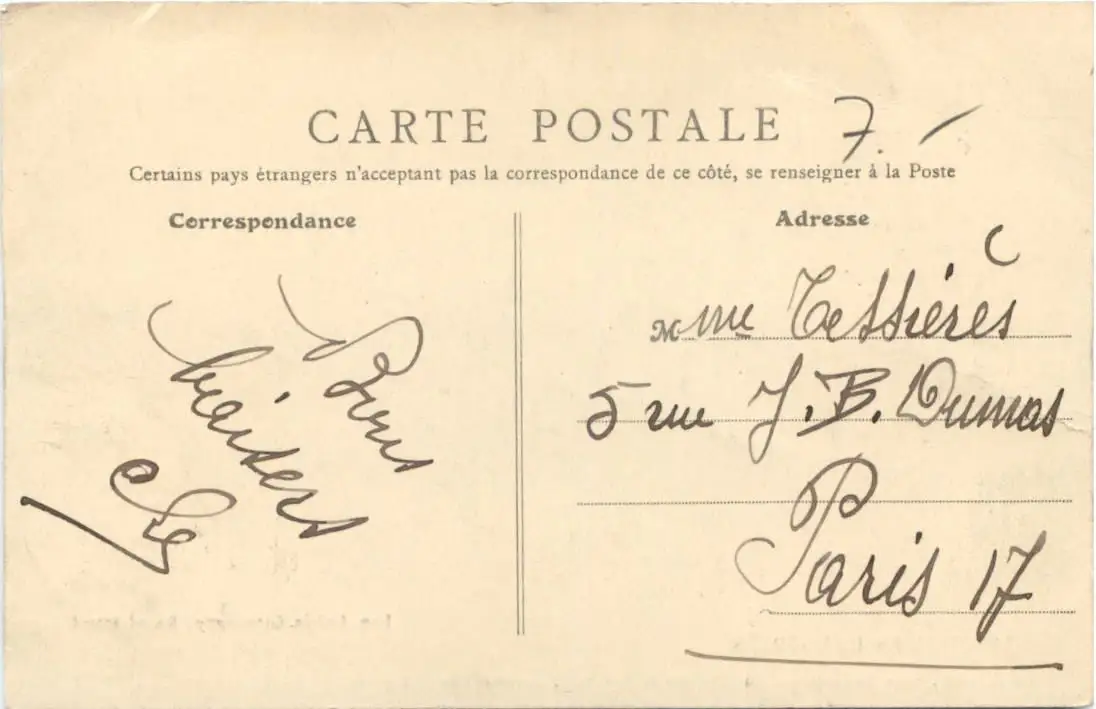 CARTE POSTALE
7.-
Certains pays étrangers n'acceptant pas la correspondance de ce côté, se renseigner à la Poste
Correspondance
Adresse
Bons
baisers
Mme Tessières
5 rue J.B. Dumas
Paris 17